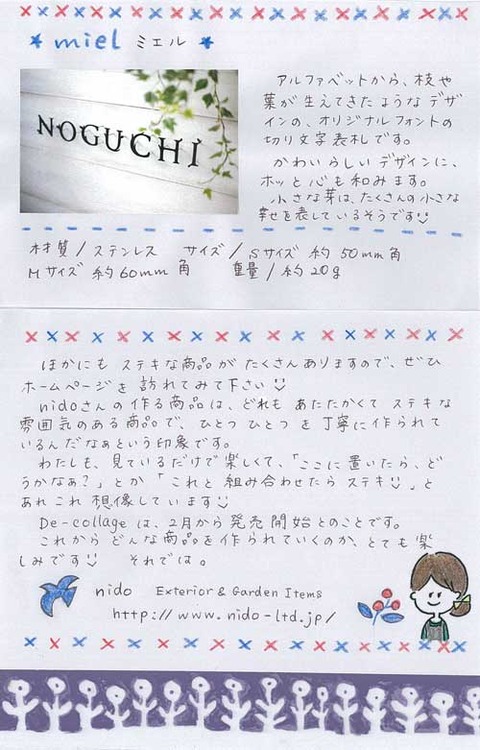 * miel ミエル *
NOGUCHI
アルファベットから、枝や
葉が生えてきたような デザ
インの、オリジナルフォントの
切り文字表札です。
かわいらしい デザインに、
ホッと 心も 和みます。
小さな芽は、たくさんの 小さな
幸せを表しているそうです
材質/ステンレス サイズ/Sサイズ 約50mm角
Mサイズ 約60mm角 重量/約20g
ほかにも ステキな商品が たくさんありますので、ぜひ
ホームページを 訪れてみて下さい
nidoさんの作る商品は、どれも あたたかくて ステキな
雰囲気のある商品で、ひとつ ひとつを丁寧に作られて
いるんだなぁという印象です。
わたしも、見ているだけで楽しくて、「ここに置いたら、ど
うかなぁ?」とか「これと 組み合わせたら ステキ」と
あれこれ 想像しています
De-collage は、2月から発売開始とのことです。
これから どんな商品を作られていくのか、とても楽
しみです それでは。
nido Exterior & Garden Items
http://www.nido-ltd.jp/